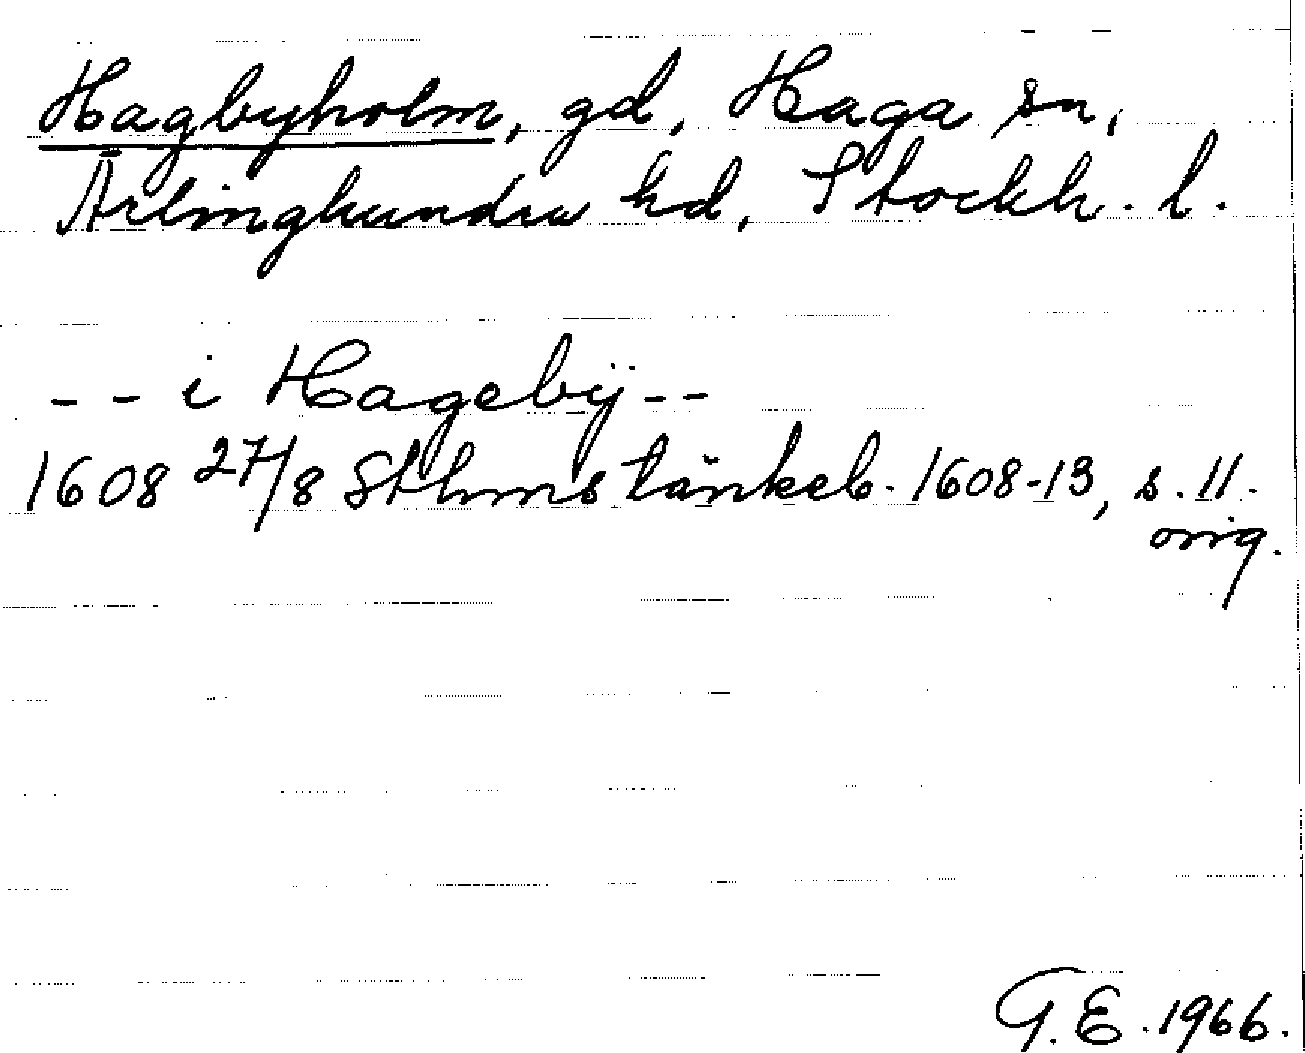 Hagbyholm, gd, Haga sn,
Ärlinghundra hd, Stockh. l.
-- i Hagebÿ--
1608 27/8 Sthms tänkeb. 1608-13, s. 11.
orig.
G.E. 1966.